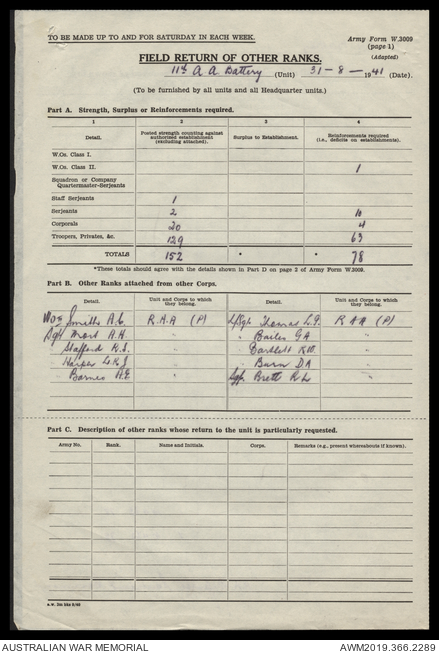 TO BE MADE UP TO AND FOR SATURDAY IN EACH WEEK.
Army Form W.3009
(page 1)
(Adapted)
FIELD RETURN OF OTHER RANKS.
11th A A Battery (Unit) 31 - 8 - 1941 (Date).
(To be furnished by all units and all Headquarter units.)
Part A. Strength, Surplus or Reinforcements required.
1 2 3 4
Detail. Posted strength counting against authorized establishment (excluding attached). Surplus to Establishment. Reinforcements required (i.e., deficits on establishments).
W.Os. Class I.
W.Os. Class II. 1
Squadron or Company Quartermaster-Serjeants
Staff Serjeants 1
Serjeants 2 10
Corporals 20 4
Troopers, Privates, &c. 129 63
TOTALS 152 * * 78
*These totals should agree with the details shown in Part D on page 2 of Army Form W.3009.
Part B. Other Ranks attached from other Corps.
Detail. Unit and Corps to which they belong. Detail. Unit and Corps to which they belong.
Smith A.C. R.A.A (P) L/Sgt Thomas R A A (P)
Sgt Mort A.H. " " Bailes G A "
Stafford K.J. " " Bartlett R.W. "
Harper " " Burn D A "
Barnes A.E " Brett R L "
Part C. Description of other ranks whose return to the unit is particularly requested.
Army No. Rank. Name and Initials. Corps. Remarks (e.g., present whereabouts if known).
AUSTRALIAN WAR MEMORIAL AWM2019.366.2289